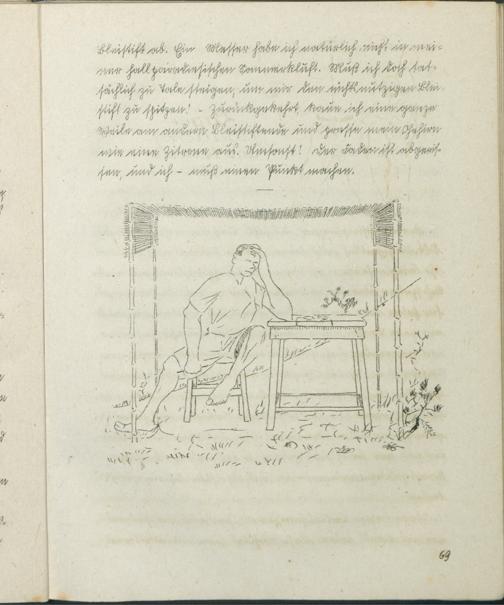 Bleistift ab. Ein Messer habe ich natürlich nicht in mei-
ner halbparadiesischen Sommerkluft. Muß ich doch tat-
sächlich zu Tale steigen, um mir den nichtsnutzigen Blei-
stift zu spitzen! – Zurückgekehrt, kaue ich eine ganze
Weile am andern Bleistiftende und presse mein Gehirn
wie eine Zitrone aus. Umsonst! Der Faden ist abgeris-
sen, und ich – muß einen Punkt machen.
69